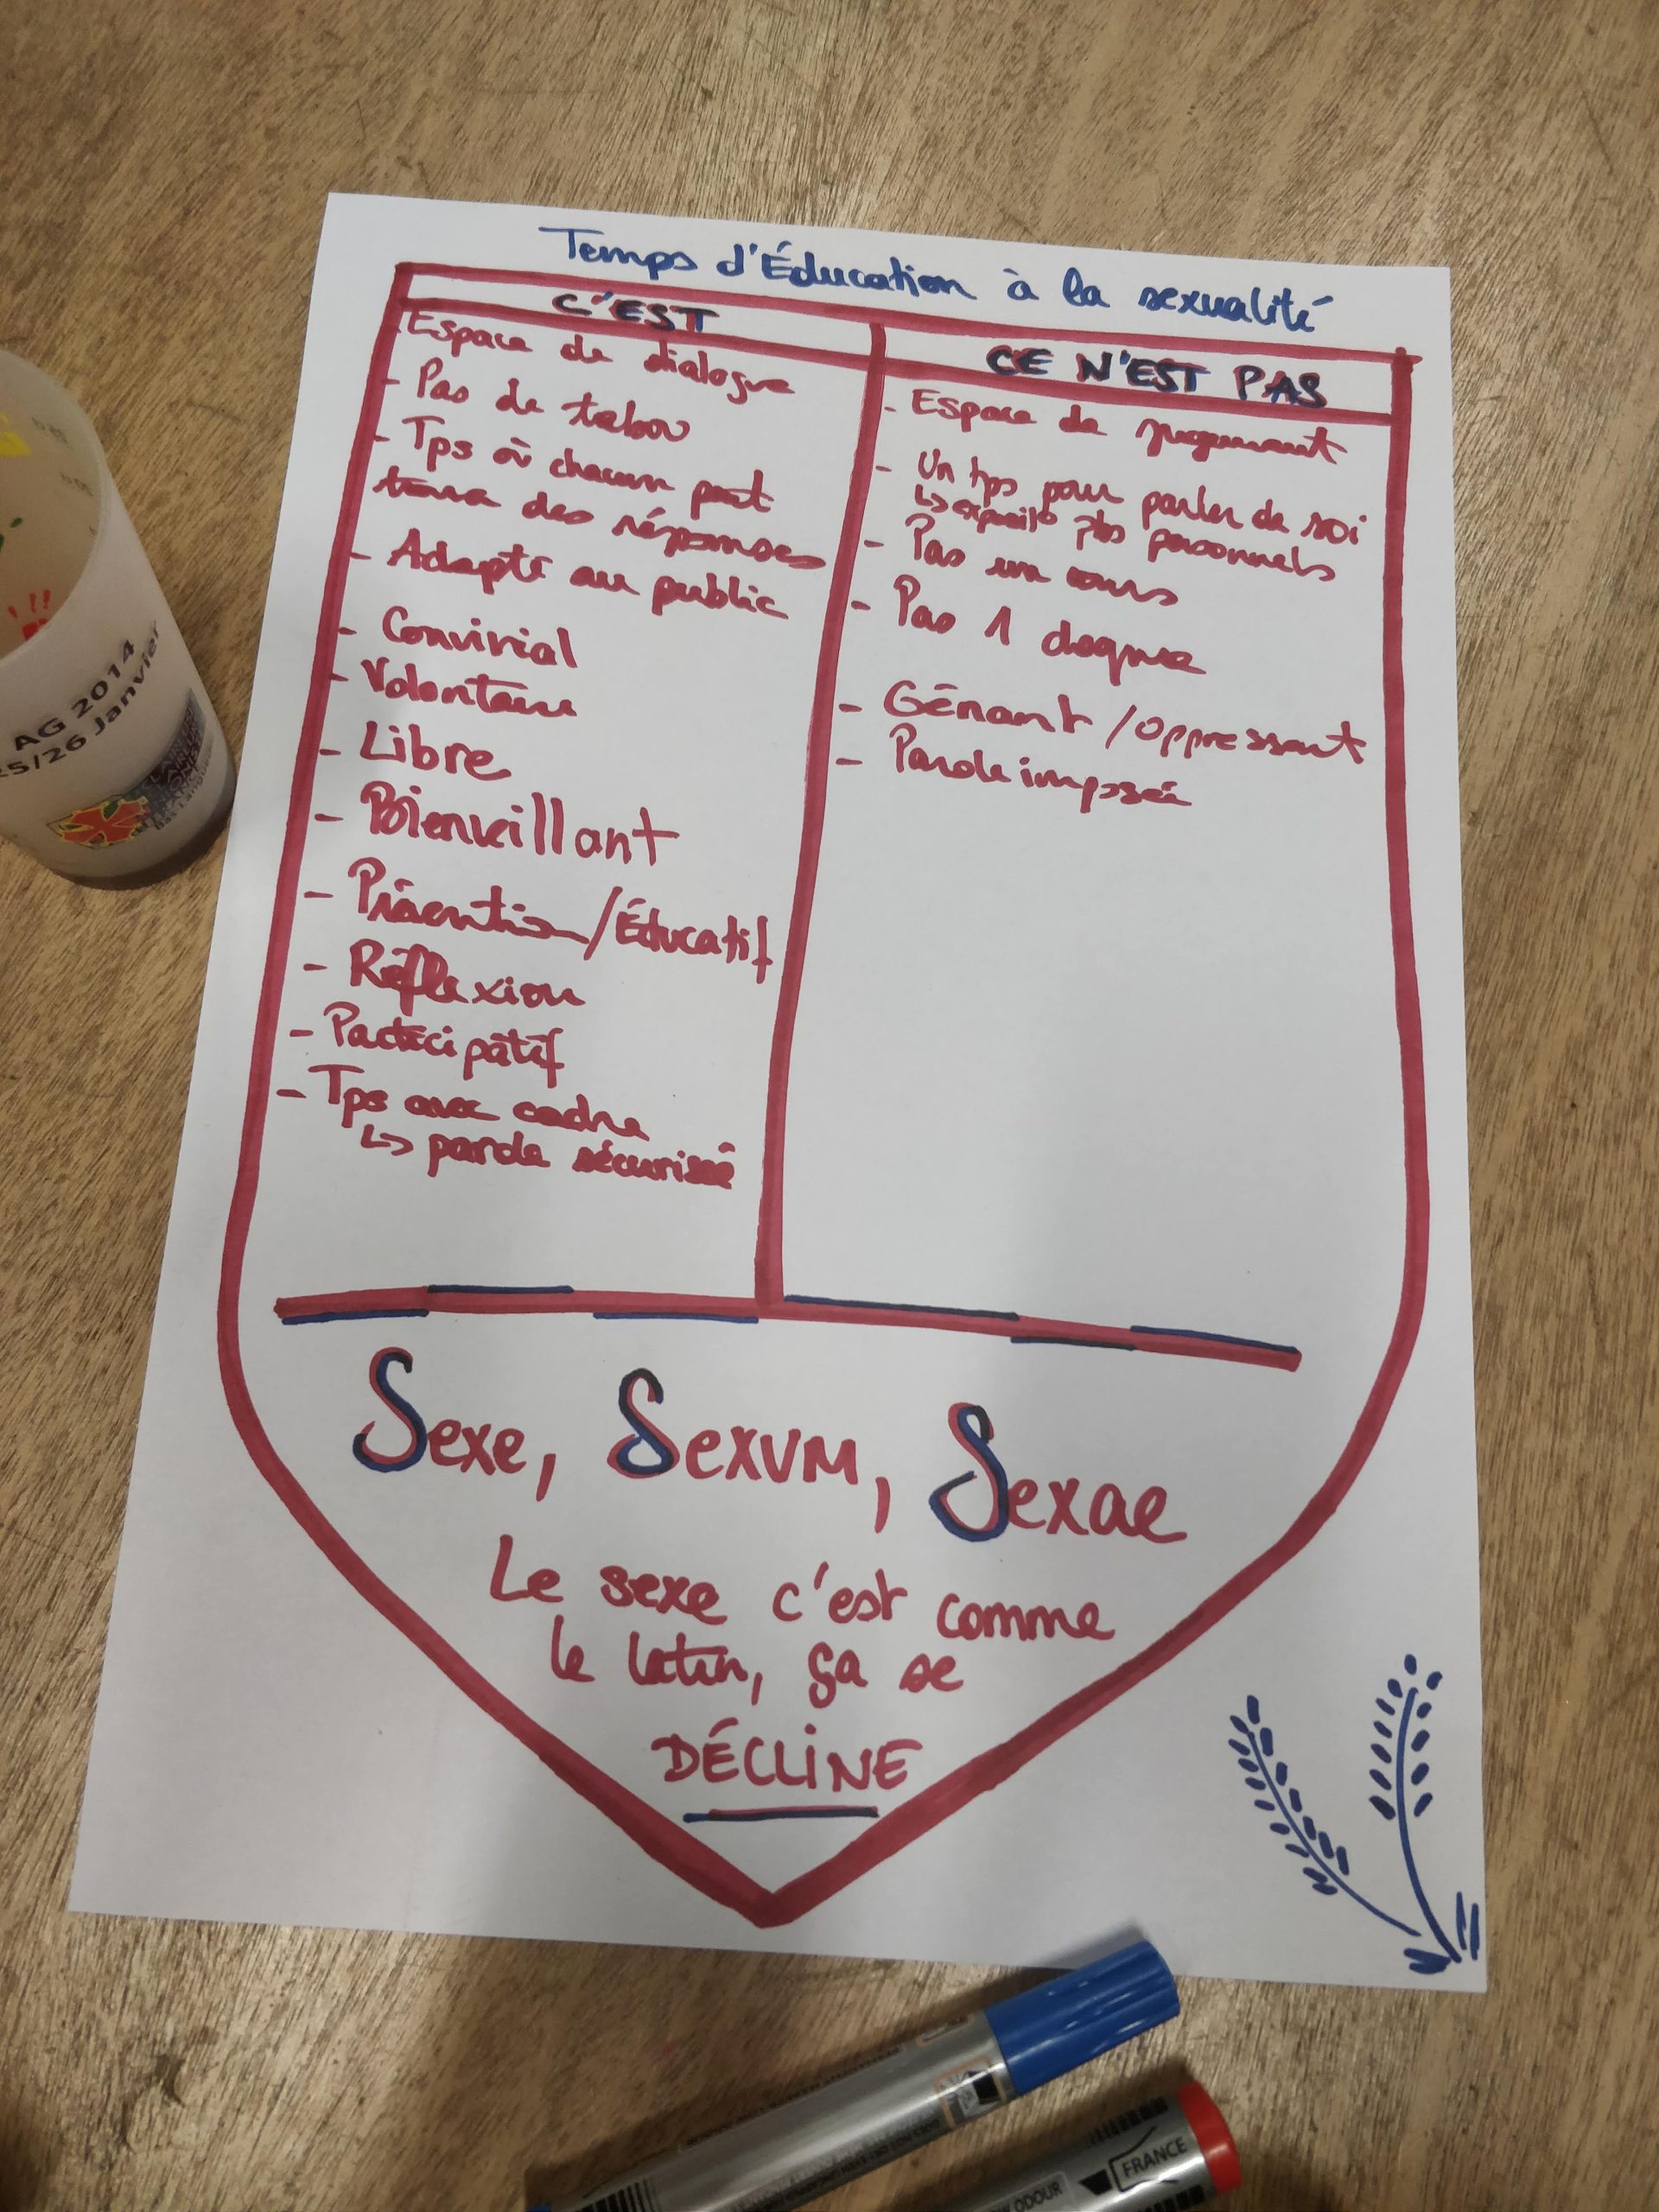 Temps d'Éducation à la sexualité
C'EST
Espace de dialogue
- Pas de tabou
- Tps où chacun peut
trouver des réponses
- Adapté au public
- Convivial
- Volontaire
- Libre
- Bienveillant
- Prévention/Éducatif
- Réflexion
- Participatif
- Tps avec cadre
↳ parole sécurisée
CE N'EST PAS
- Espace de jugement
- Un tps pour parler de soi
↳ pbs personnels
- Pas un cours
- Pas 1 dogme
- Gênant / oppressant
- Parole imposée
Sexe, SexVM, Sexae
Le sexe c'est comme
le latin, ça se
DÉCLINE
AG 2014
25/26 Janvier
FRANCE
ODOUR